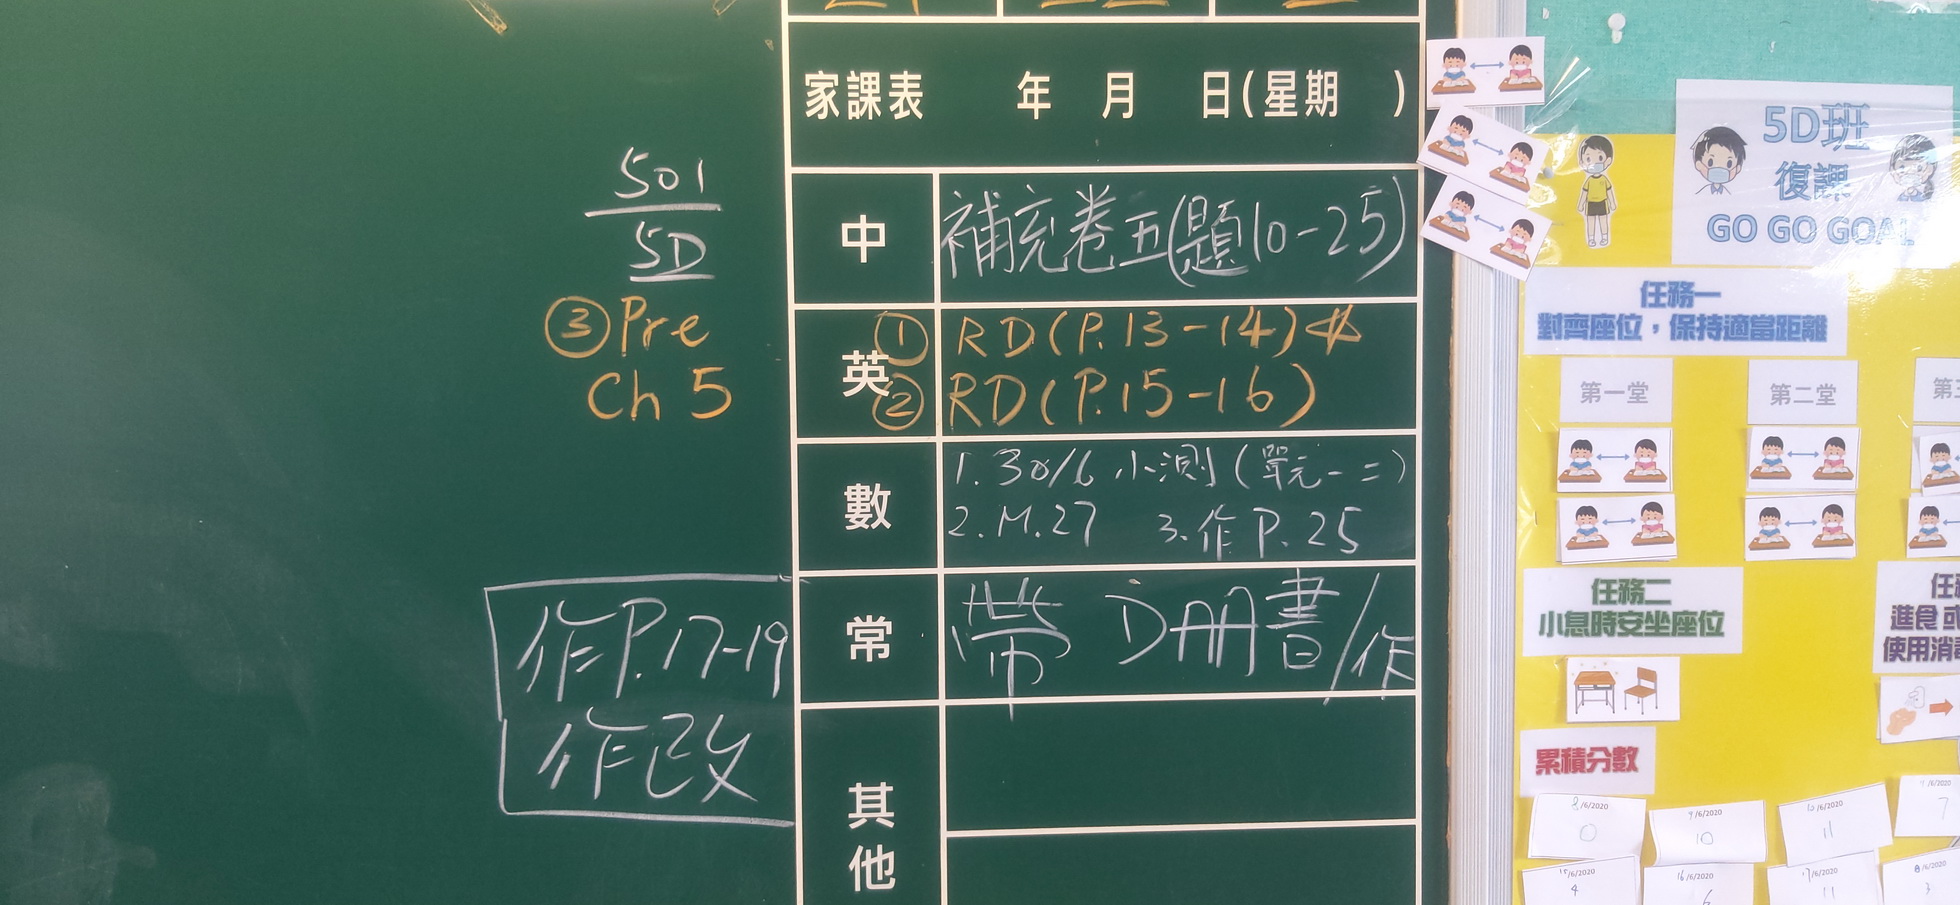 家課表 年 月 日(星期 )
501
5D
中 補充卷五(題10-25)
英 ① RD(P.13-14)
② RD(P.15-16)
③ Pre
Ch 5
數 1. 30/6 小測(單元一二)
2. M.27 3. 作 P.25
常 帶 D冊書/作
作P.17-19
作改
其他
5D班
復課
GO GO GOAL
任務一
對齊座位，保持適當距離
第一堂 第二堂
任務二
小息時安坐座位
進食或
使用消
累積分數
8/6/2020
0
9/6/2020
10
10/6/2020
11
7
15/6/2020
4
16/6/2020
6
17/6/2020
11
3